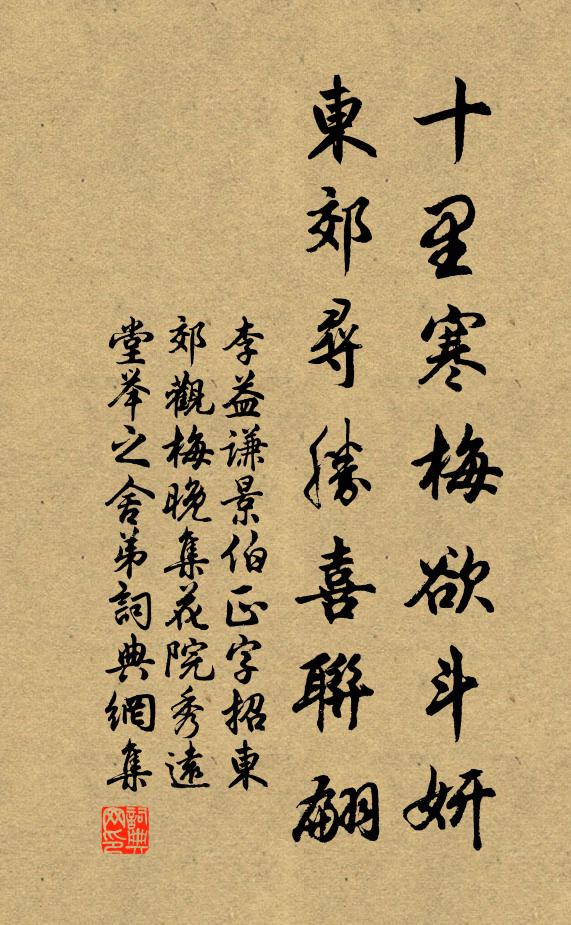 十里寒梅欲斗妍
東郊尋勝喜聯翩
李益謙景伯正字招東
郊觀梅晚集花院秀遠
堂举之舍弟詞典網集
詞典网印